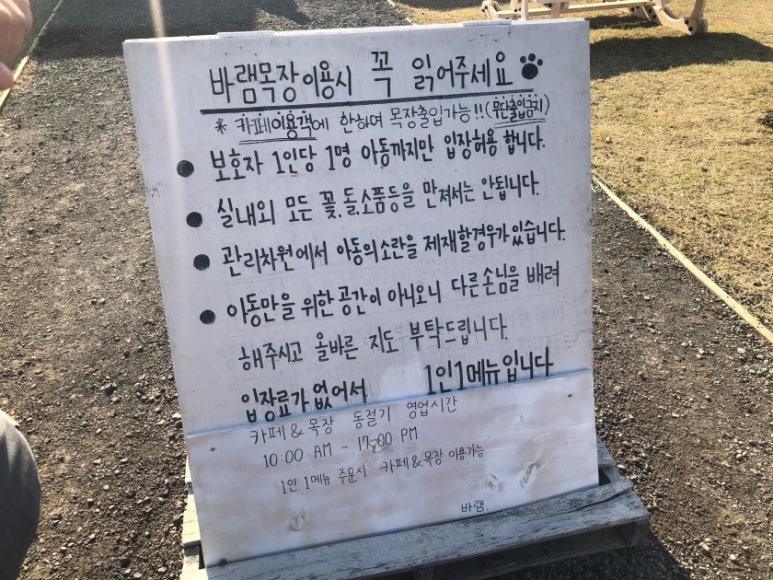 바램목장 이용시 꼭 읽어주세요
* 카페이용객에 한하여 목장출입가능!! (무단출입금지)
● 보호자 1인당 1명 아동까지만 입장허용 합니다.
● 실내외 모든 꽃, 돌, 소품등을 만져서는 안됩니다.
● 관리차원에서 아동의소란을 제재할경우가있습니다.
● 아동만을 위한 공간이 아니오니 다른손님을 배려
해주시고 올바른 지도 부탁드립니다.
입장료가 없어서 1인1메뉴입니다
카페 & 목장 동절기 영업시간
10:00 AM ~ 17:00 PM
1인 1메뉴 주문시 카페&목장 이용가능
바램.